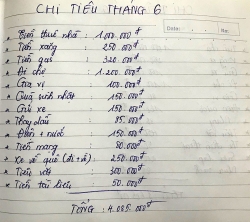 CHI TIÊU THÁNG 6
Date:
No.
* Tiền thuê nhà : 1.000.000đ
* Tiền xăng : 250.000đ
* Tiền quà : 320.000đ
* Đi chợ : 1.200.000đ
* Gia vị : 100.000đ
* Quà sinh nhật : 150.000đ
* Gửi xe : 150.000đ
* Thay dầu : 85.000đ
* Điện + nước : 150.000đ
* Tiền mạng : 80.000đ
* Xe về quê (đi + về) : 250.000đ
* Tiền : 300.000đ
* Tiền tài liệu : 50.000đ
TỔNG : 4.085.000đ